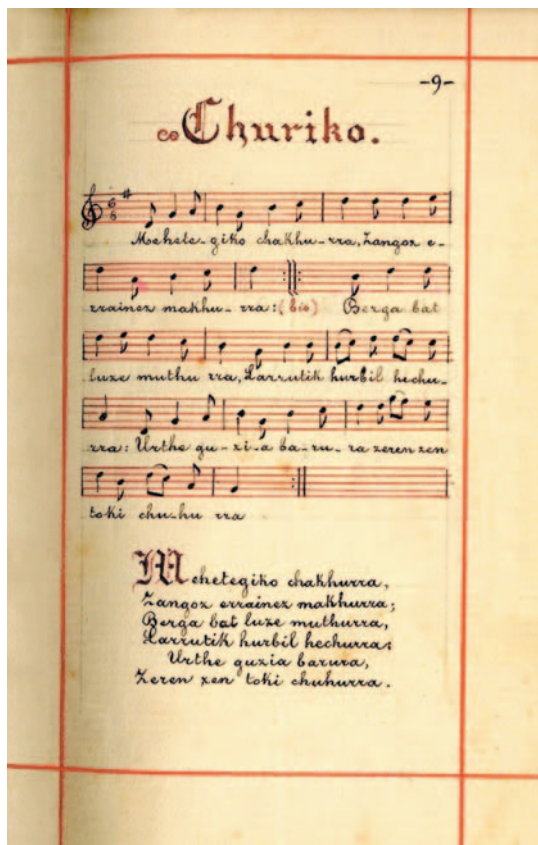 -9-
Churiko.
Mehete-giko chakhu-rra, Zangoz e-
rrainez makhu-rra: (bis) Berga bat
luze muthu rra, Larrutik hurbil hechu-
rra: Urthe gu-zi-a ba-ru-ra zeren zen
toki chu-hu rra
Mehetegiko chakhurra,
Zangoz errainez makhurra;
Berga bat luze muthurra,
Larrutik hurbil hechurra:
Urthe guzia barura,
Zeren zen toki chuhurra.